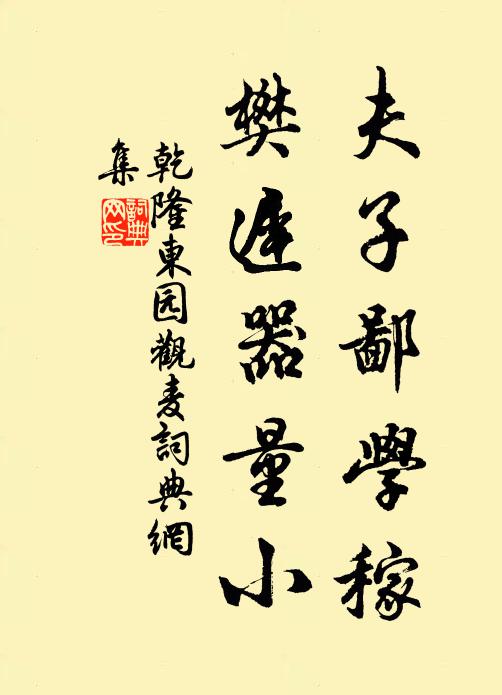 夫子鄙學稼
樊遲器量小
乾隆東园觀麦詞典網
集
詞典
网印